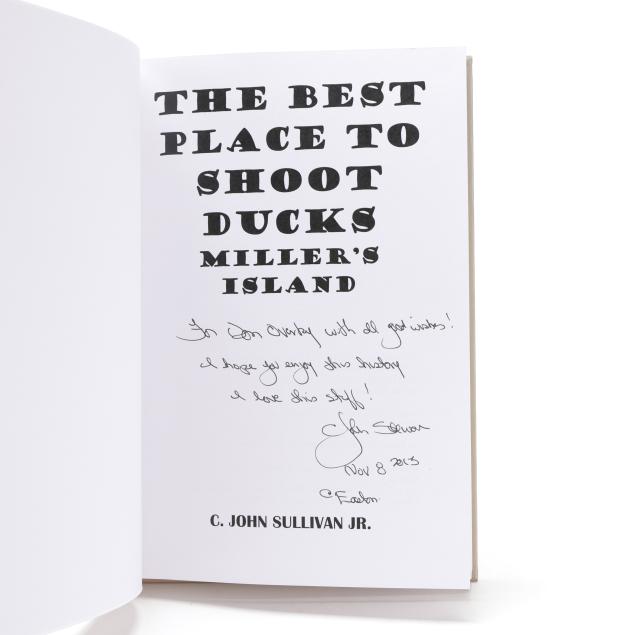 THE BEST
PLACE TO
SHOOT
DUCKS
MILLER'S
ISLAND
For Don Overby with all good wishes!
I hope you enjoy this history
I love this stuff!
John
Nov 8 2013
@ Easton
C. JOHN SULLIVAN JR.